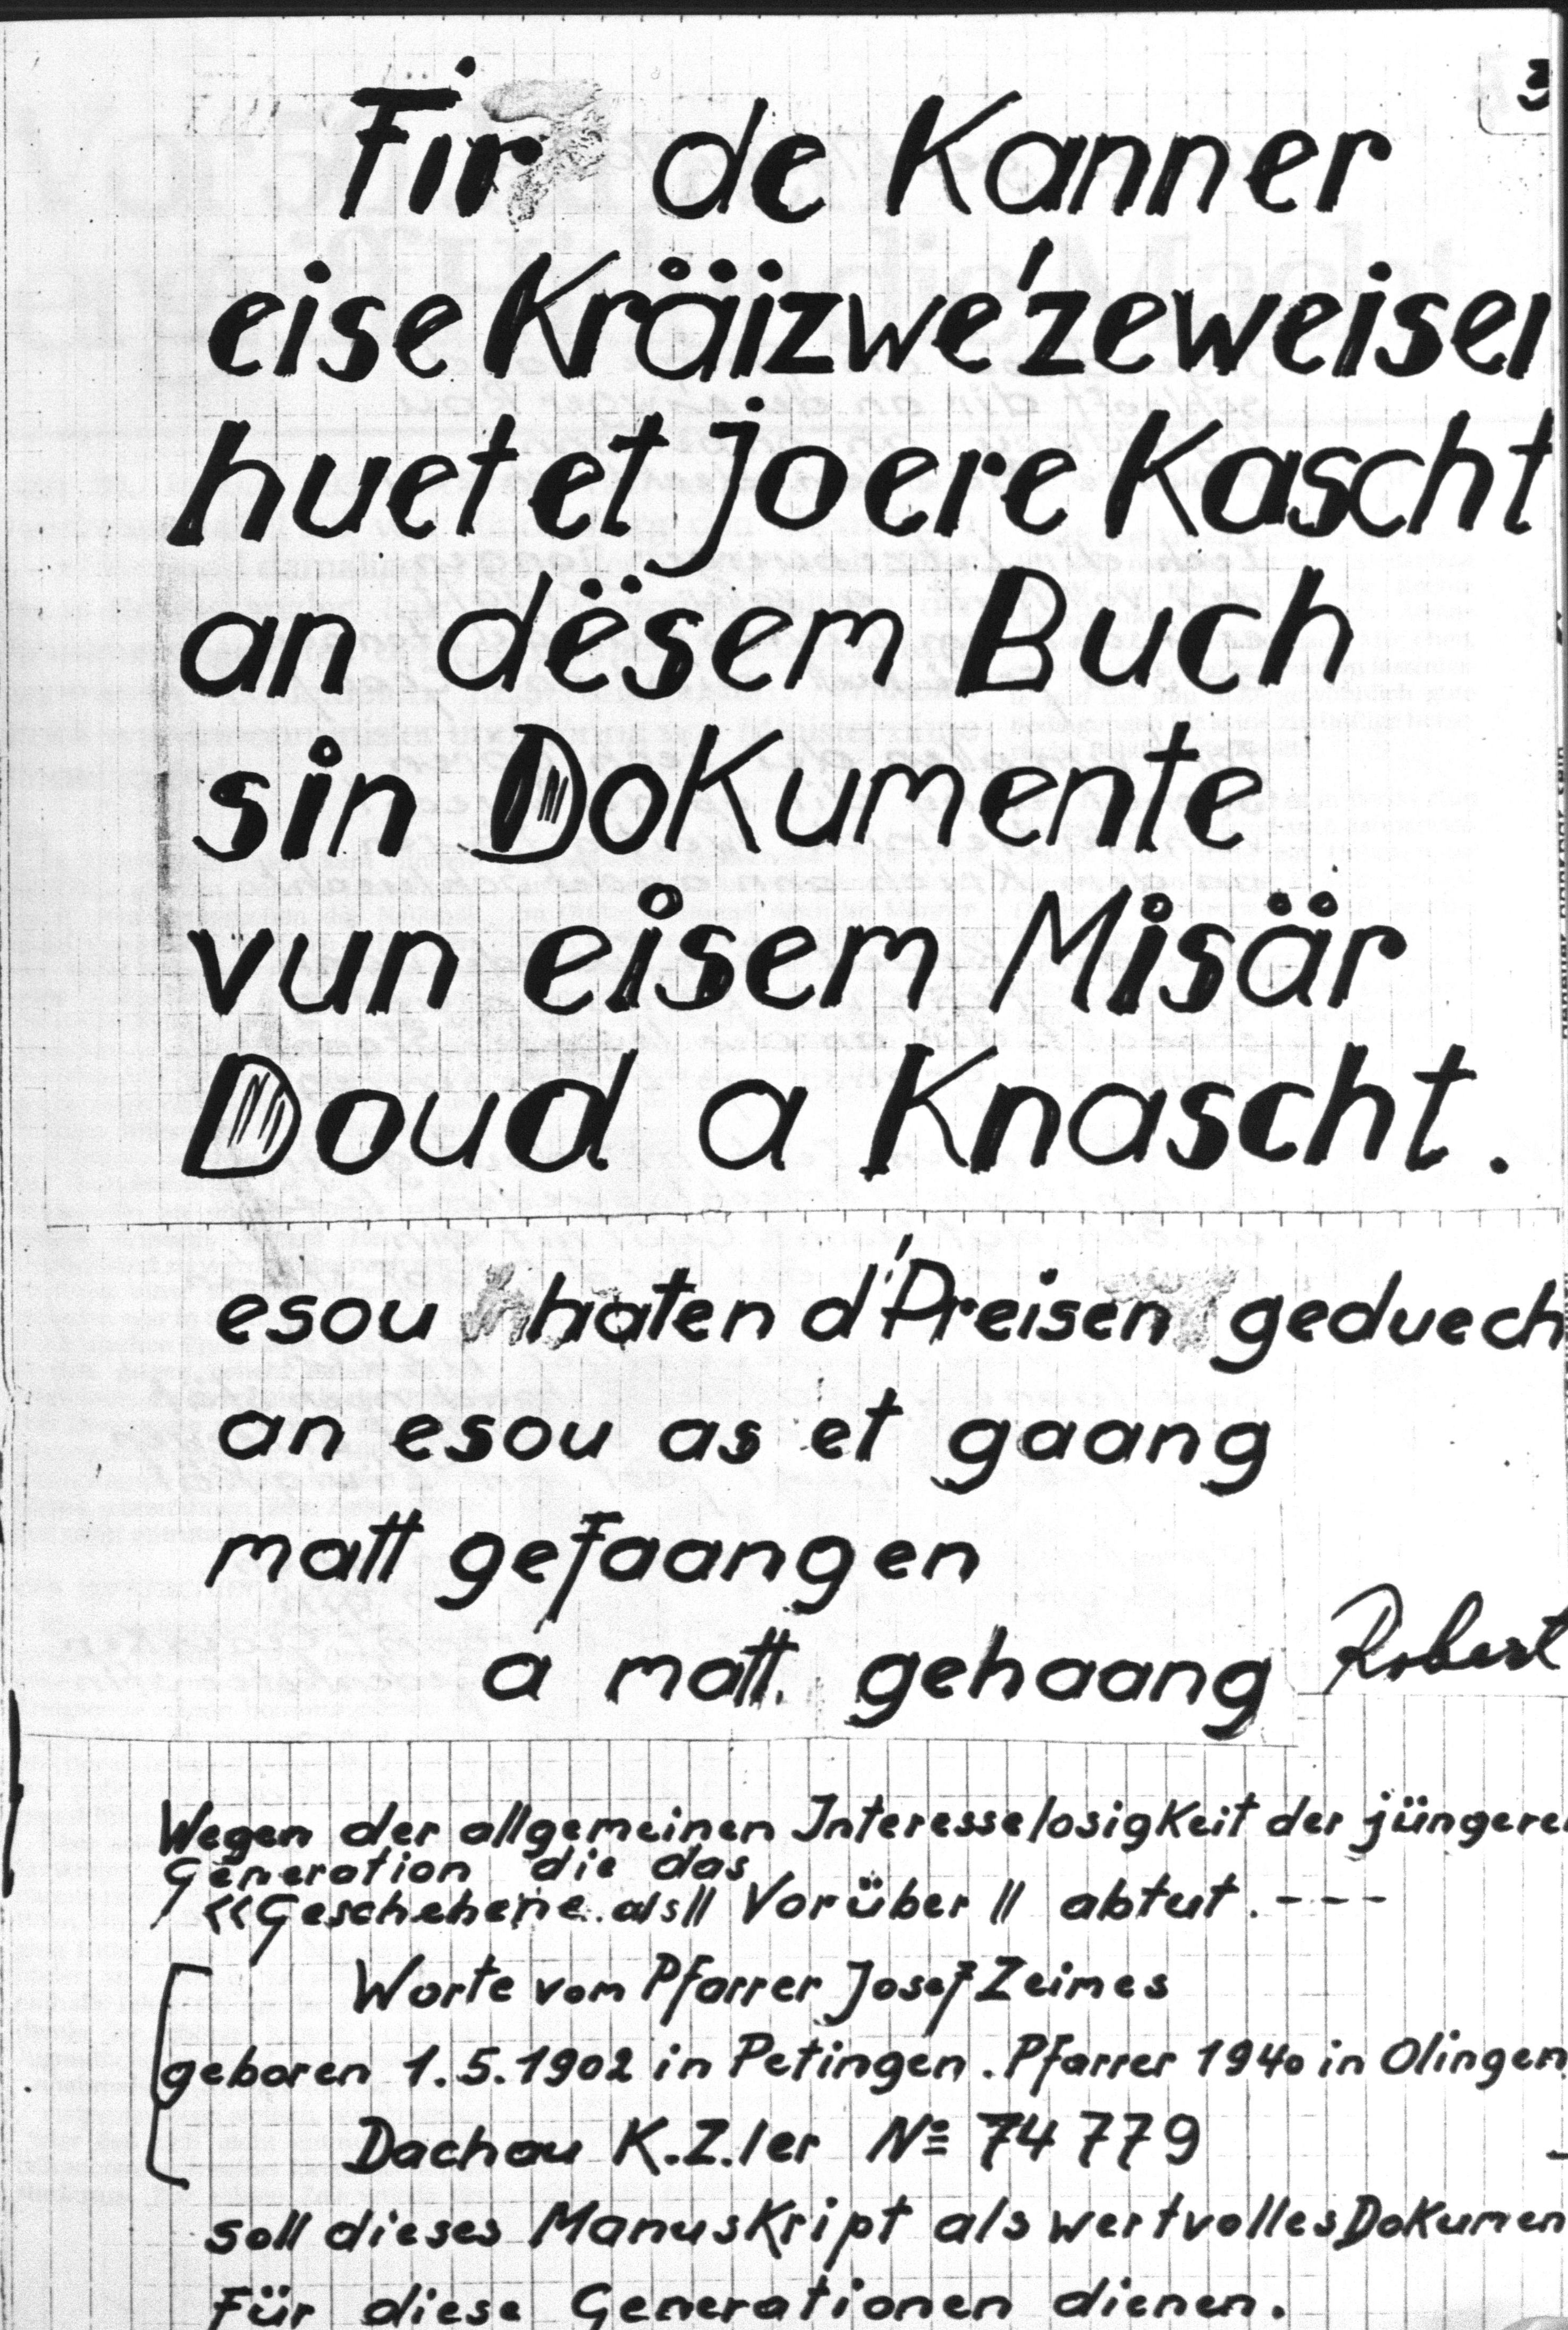 3
Fir de Kanner
eise Kräizwe'zeweiser
huet et Joere Kascht
an dësem Buch
sin Dokumente
vun eisem Misär
Doud a Knascht.
esou haten d'Preisen geduech
an esou as et gaang
matt gefaangen
a matt gehaang Robert
Wegen der allgemeinen Interesselosigkeit der jüngere
Generation die das
<<Geschehene als || Vorüber || abtut. ---
Worte vom Pfarrer Josef Zeimes
geboren 1.5.1902 in Petingen. Pfarrer 1940 in Olingen.
Dachau K.Z.ler № 74779
soll dieses Manuskript als wertvolles Dokumen
Für diese Generationen dienen.